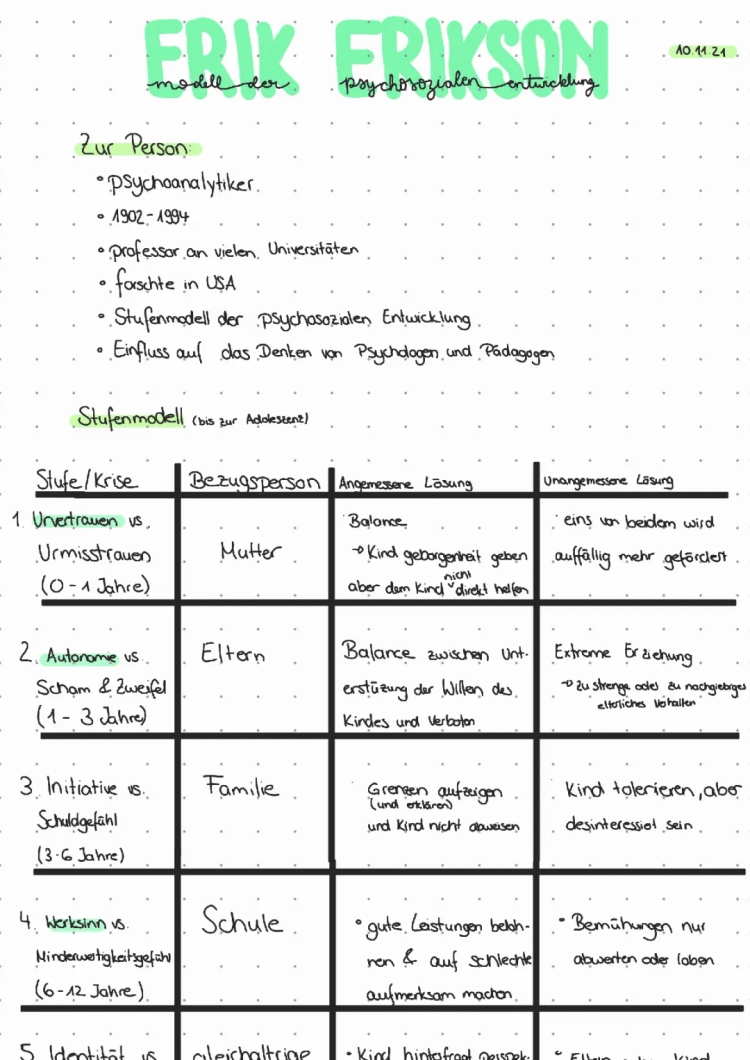 ERIK ERIKSON
10.11.21
modell der psychosozialen entwicklung
Zur Person:
• psychoanalytiker
• 1902-1994
• professor an vielen Universitäten
• forschte in USA
• Stufenmodell der psychosozialen Entwicklung
• Einfluss auf das Denken von Psychologen und Pädagogen
Stufenmodell (bis zur Adoleszenz)
Stufe/Krise
Bezugsperson
Angemessene Lösung
Unangemessene Lösung
1. Urvertrauen vs.
Urmisstrauen
(0-1 Jahre)
Mutter
Balance
→ Kind geborgenheit geben
nicht
aber dem Kind ˅direkt helfen
eins von beidem wird
auffällig mehr gefördert
2. Autonomie vs.
Scham & Zweifel
(1-3 Jahre)
Eltern
Balance zwischen Unt-
erstüzung der Willen des
Kindes und Verboten
Extreme Erziehung
→ zu strenge oder zu nachgiebiges
elterliches Verhalten
3. Initiative vs.
Schuldgefühl
(3-6 Jahre)
Familie
Grenzen aufzeigen
(und erklären)
und Kind nicht abweisen
Kind tolerieren, aber
desinteressiet sein
4. Werksinn vs.
Minderwertigkeitsgefühl
(6-12 Jahre)
Schule
• gute Leistungen beloh-
nen & auf schlechte
aufmerksam machen
• Bemühungen nur
abwerten oder loben
5. Identität vs
gleichaltrige
• Kind hinterfragt perspek-
Kind